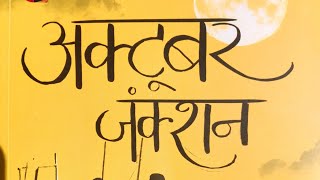 अक्टूबर
जंक्शन